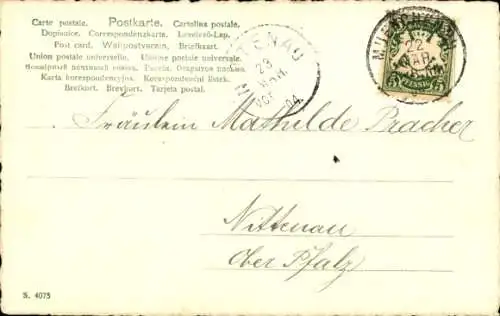 Carte postale. Postkarte. Cartolina postale.
Dopisnice. Correspondenzkarte. Levelező-Lap.
Post card. Weltpostverein. Briefkaart.
Union postale universelle. Unione postale universale.
Karta korespondencyjna. Korespondenční lístek.
Brefkort. Brevkort. Tarjeta postal.
NITTENAU
23
MÄR.
04.
MUENCHEN
22
MÄR.
5 PFENNIG 5
Fräulein Mathilde Pracher
Nittenau
Ober Pfalz
S. 4075